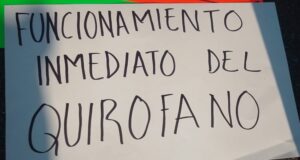 FUNCIONAMIENTO
INMEDIATO DEL
QUIROFANO